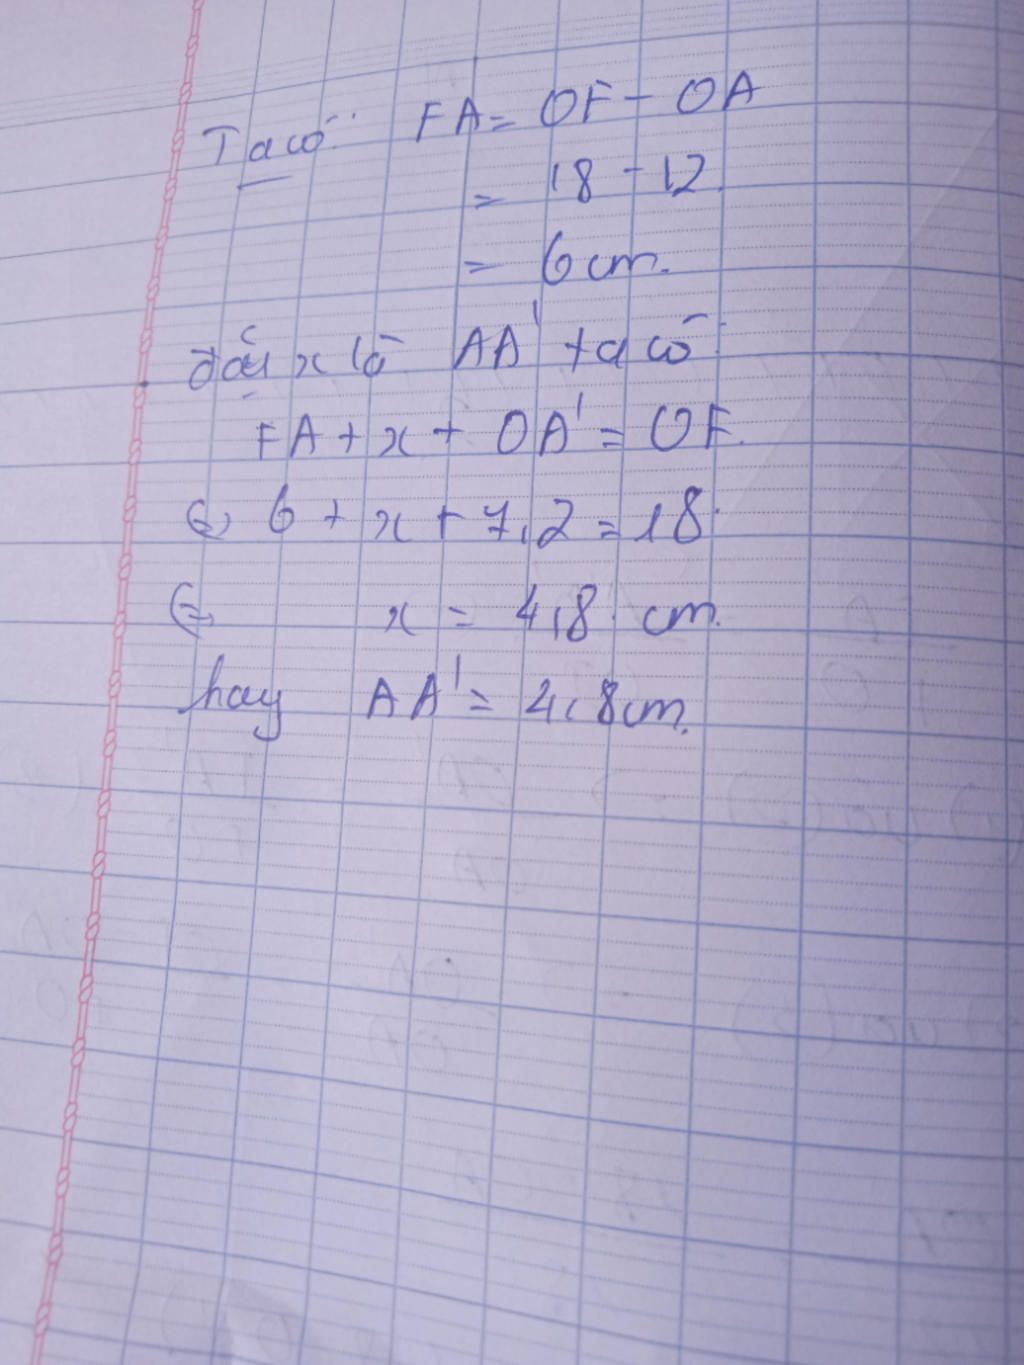 Ta có: FA = OF - OA
= 18 - 12
= 6 cm.
đặt x là AA' ta có:
FA + x + OA' = OF.
⇔ 6 + x + 7,2 = 18
⇔ x = 4,8 cm.
hay AA' = 4,8 cm.